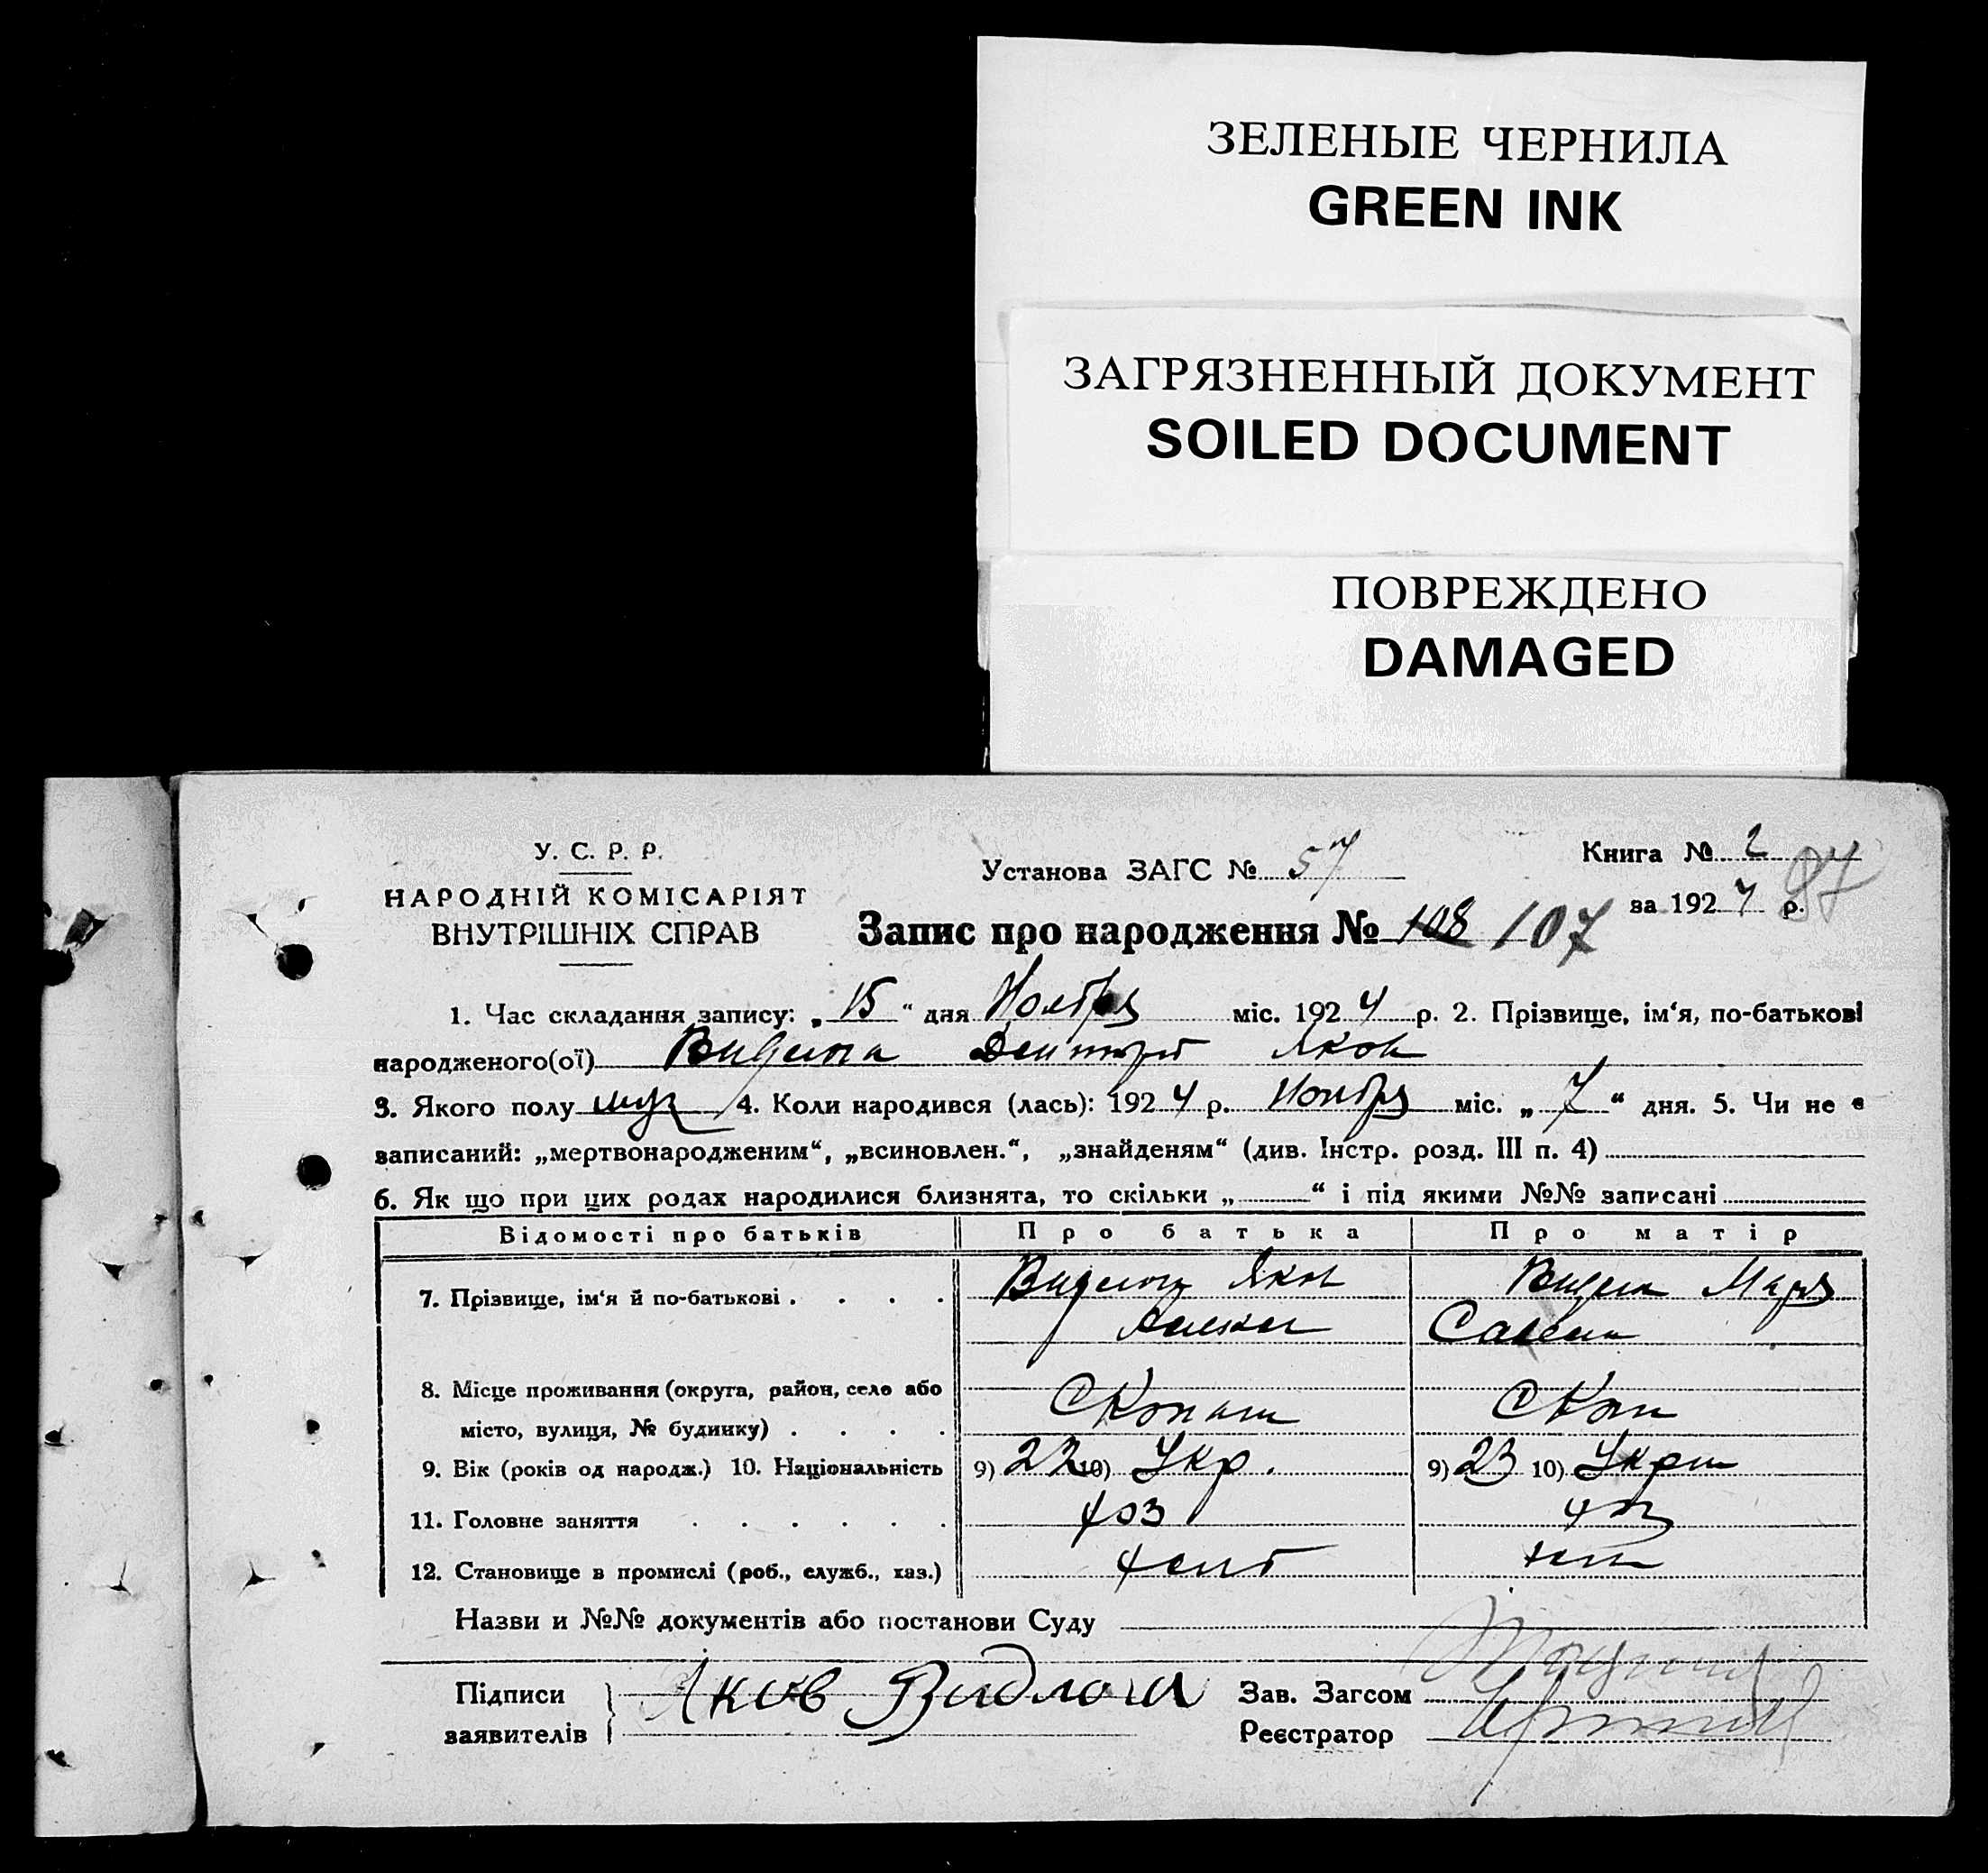 ЗЕЛЕНЫЕ ЧЕРНИЛА
GREEN INK
ЗАГРЯЗНЕННЫЙ ДОКУМЕНТ
SOILED DOCUMENT
ПОВРЕЖДЕНО
DAMAGED
У. С. Р. Р.
НАРОДНІЙ КОМІСАРІЯТ
ВНУТРІШНІХ СПРАВ
Установа ЗАГС № 57
Книга № 2
за 1924 р. 97
Запис про народження № 108 107
1. Час складання запису: „15“ дня Ноября міс. 1924 р. 2. Прізвище, ім‘я, по-батькові
народженого(ої) Дмитрий Яков
3. Якого полу муж 4. Коли народився (лась): 1924 р. Ноября міс. „7“ дня. 5. Чи не є
записаний: „мертвонародженим“, „всиновлен.“, „знайденям“ (див. Інстр. розд. III п. 4)
6. Як що при цих родах народилися близнята, то скільки „ “ і під якими №№ записані
Відомості про батьків Про батька Про матір
7. Прізвище, ім‘я й по-батькові . . . . Яков Мария
8. Місце проживання (округа, район, село або
місто, вулиця, № будинку) . . . .
9. Вік (років од народж.) 10. Національність 9) 22 10) Укр. 9) 23 10)
11. Головне заняття . . . . . .
12. Становище в промислі (роб., служб., хаз.)
Назви и №№ документів або постанови Суду
Підписи Яков Видлога Зав. Загсом
заявителів Реєстратор